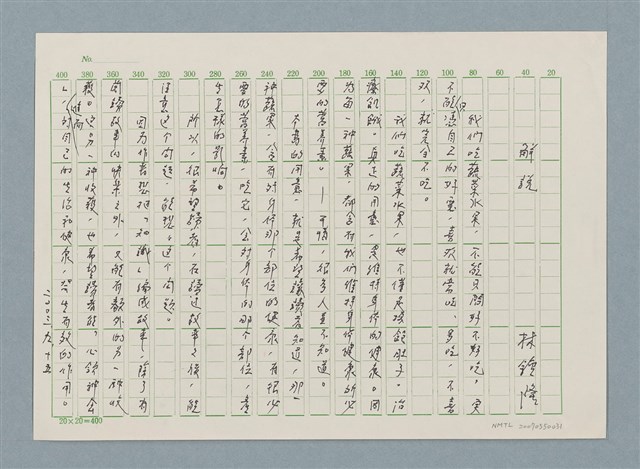 No.
400 380 360 340 320 300 280 260 240 220 200 180 160 140 120 100 80 60 40 20
解說
林鍾隆
我們吃蔬菜水果，不能只問好不好吃，實
不能只憑自己的好惡，喜歡就常吃、多吃，不喜
歡，就完全不吃。
我們吃蔬菜水果，也不僅是填飽肚子，治
療飢餓。真正的用意，是維持身体的健康。因
為每一種蔬果，都含有我們維持身体健康所必
要的營養素。——可惜，很多人並不知道。
本書的用意，就是希望讓讀者知道，那一
種蔬果，含有對身体那個部位的健康，有很必
要的營養素，吃它，會對身体的那個部位，產
生怎樣的影响。
所以，很希望讀者，在讀過故事之後，能
注意這个問題，能想想這个問題。
因為作者想把「知識」編成故事，除了有
閱讀故事的快樂之外，又能有額外的另一種收
穫。這另一種收穫，也希望讀者能「心領神會
」，進而對自己的生活和健康，發生有效的作用。
九、十五
20×20=400
NMTL 20090350031